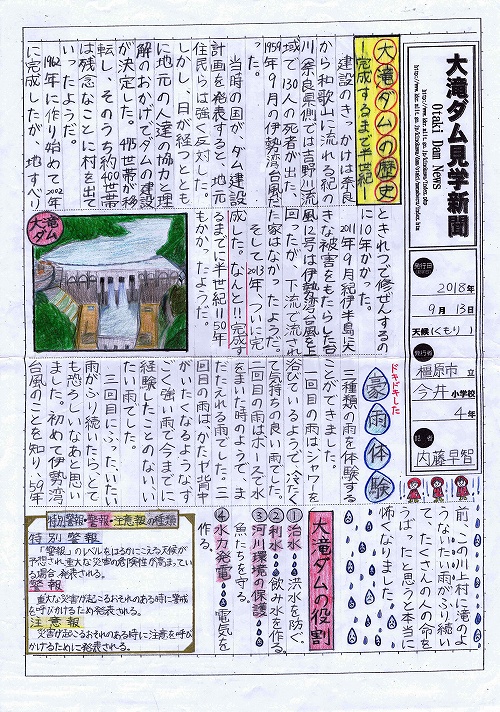 大滝ダム見学新聞
Otaki Dam News
発行日
2018年
9月13日
天候(くもり)
発行者
橿原市立
今井小学校
4年
記者
内藤早智
大滝ダムの歴史
―完成するまで半世紀―
建設のきっかけは奈良
から和歌山に流れる紀の
川。奈良県側では吉野川流
域で130人の死者が出た、
1959年9月の伊勢湾台風だ
った。
当時の国が、ダム建設
計画を発表すると、地元
住民らは強く反対した。
しかし、日が経つととも
に地元の人達の協力と理
解のおかげでダムの建設
が決定した。475世帯が移
転し、そのうち約400世帯
は残念なことに村を出て
いったようだ。
1962年に作り始めて2002年
に完成したが、地すべり
ときれつで修ぜんするの
に10年かかった。
2011年9月紀伊半島に大
きな被害をもたらした台
風12号は伊勢湾台風を上
回ったが、下流で流され
た家はなかったようだ。
そして2013年、ついに完
成した。なんと!!完成す
るまでに半世紀=50年
もかかったようだ。
大滝
ダム
ドキドキした
豪雨体験
三種類の雨を体験する
ことができました。
一回目の雨はシャワーを
浴びているようで、冷たく
て気持ちの良い雨でした。
二回目の雨はホースで水
をまいた時のようで、ま
だたえれる雨でした。三
回目の雨は、かたや背中
がいたくなるような、す
ごく強い雨で今までに
経験したことのないい
たい雨でした。
三回目にふった、いたい
雨がふり続いたらとて
も恐ろしいなあと思い
ました。初めて伊勢湾
台風のことを知り、59年
前、この川上村に滝のよ
うないたい雨がふり続い
て、たくさんの人の命を
うばったと思うと本当に
怖くなりました。
大滝ダムの役割
①治水…洪水を防ぐ。
②利水…飲み水を作る。
③河川環境の保護…
魚たちを守る。
④水力発電…電気を
作る。
特別警報・警報・注意報の種類
特別警報
「警報」のレベルをはるかにこえる天候が
予想され、重大な災害の危険性が高まっている
場合、発表される。
警報
重大な災害が起こるおそれのある時に警戒
を呼びかけるため発表される。
注意報
災害が起こるおそれのある時に注意を呼び
かけるために発表される。